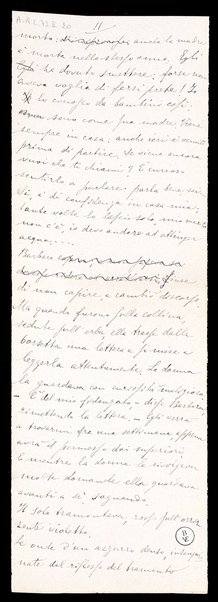 A.R.I. 73 II 20
11
morto: anche la madre
è morta nello stesso anno. Egli
ha dovuto smettere, forse non
aveva voglia di farsi prete! Io
lo conosco da bambino
sono come sua madre. Viene
sempre in casa; anche ieri è venuto
prima di partire. Se viene ancora
vuoi che ti chiami? È curioso
sentirlo a parlare: parla bene
Sì, è di confidenza in casa mia;
tante volte lo lascio solo
non c'è, io devo andare ad attingere
acqua....
Barbara finse
di non capire e cambiò discorso.
Ma quando furono sulla collina,
sedute sull'erba, ella trasse dalla
borsetta una lettera e si mise a
leggerla attentamente. La donna
la guardava con curiosità
– È del mio fidanzato – disse Barbara,
rimettendo la lettera. – Egli verrà
a trovarmi fra una settimana, appena
avrà il permesso dai superiori.
E mentre la donna le rivolgeva
molte domande ella guardava
avanti a sé sognando.
Il sole tramontava, rosso sull'oriz
zonte violetto.
le onde d'un azzurro denso,
nate dal riflesso del tramonto